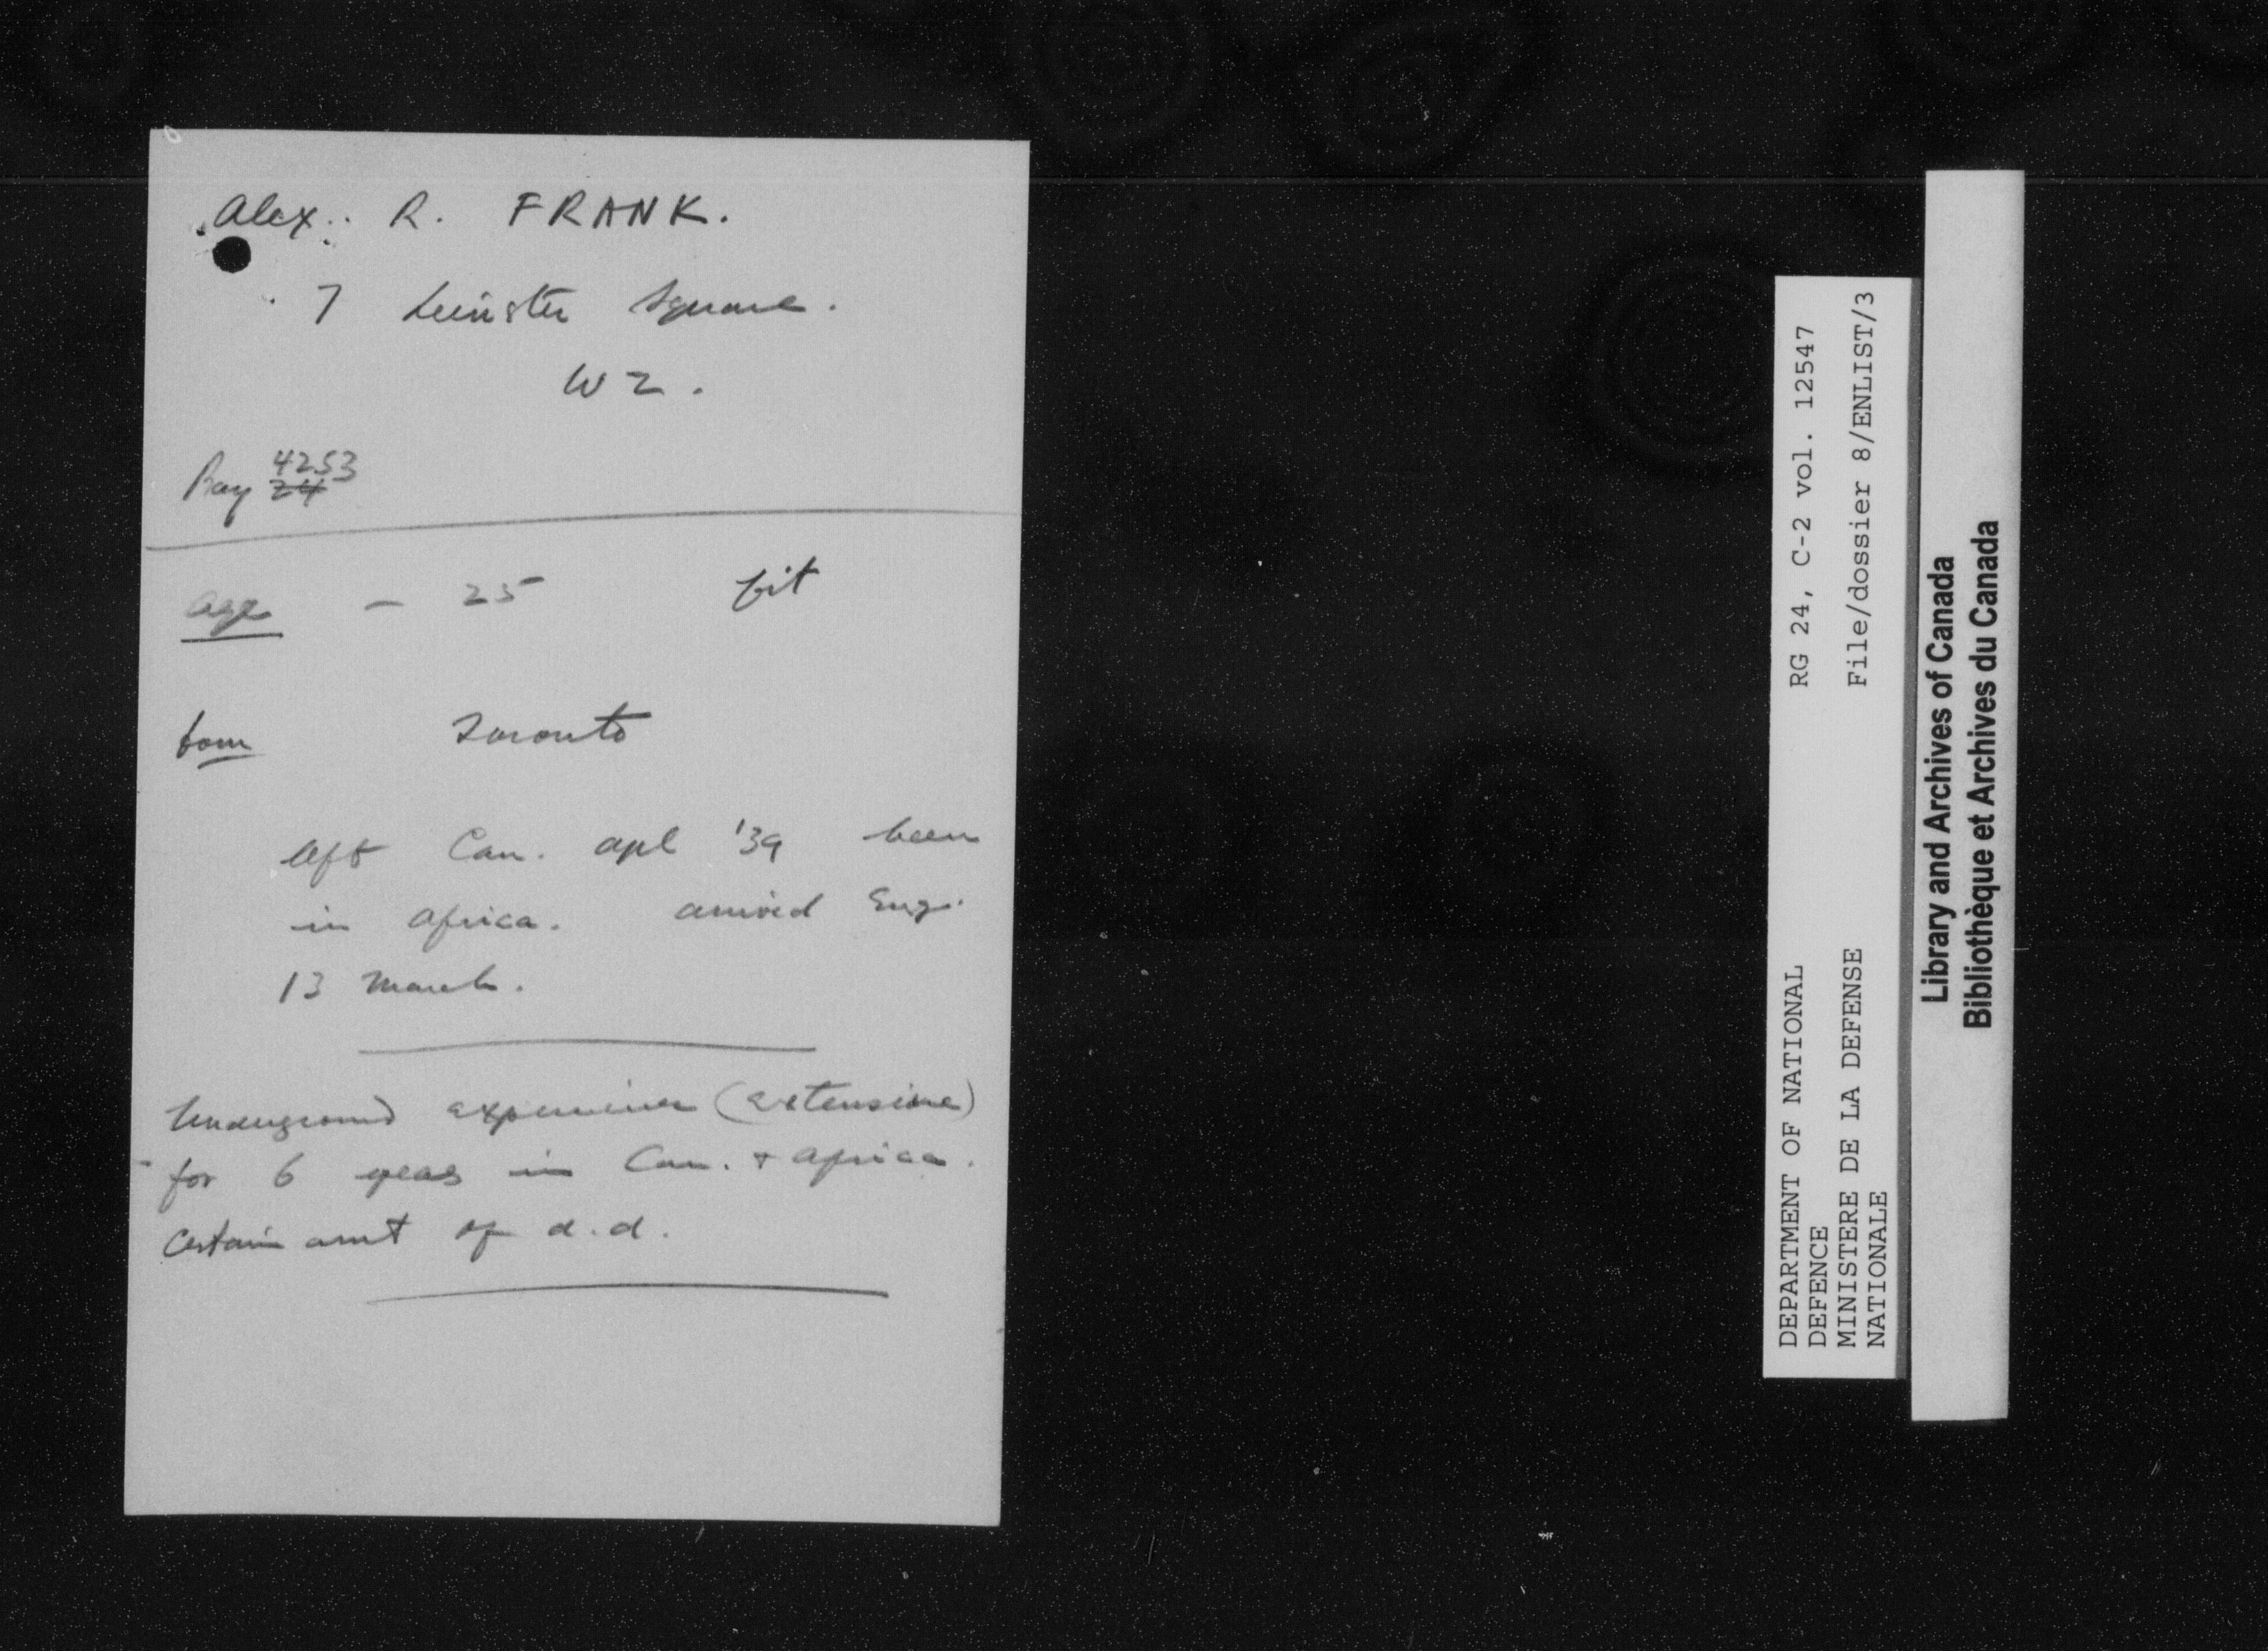 Alex. R. FRANK.
7 Leinster Square.
W 2.
4253
Bay 24
age — 25 fit
born Toronto
left Can. apl '39 been
in Africa. arrived Eng.
13 March.
Underground experience (extensive)
for 6 years in Can. + Africa.
Certain amt of d.d.
DEPARTMENT OF NATIONAL
DEFENCE
MINISTERE DE LA DEFENSE
NATIONALE
RG 24, C-2 vol. 12547
File/dossier 8/ENLIST/3
Library and Archives of Canada
Bibliothèque et Archives du Canada